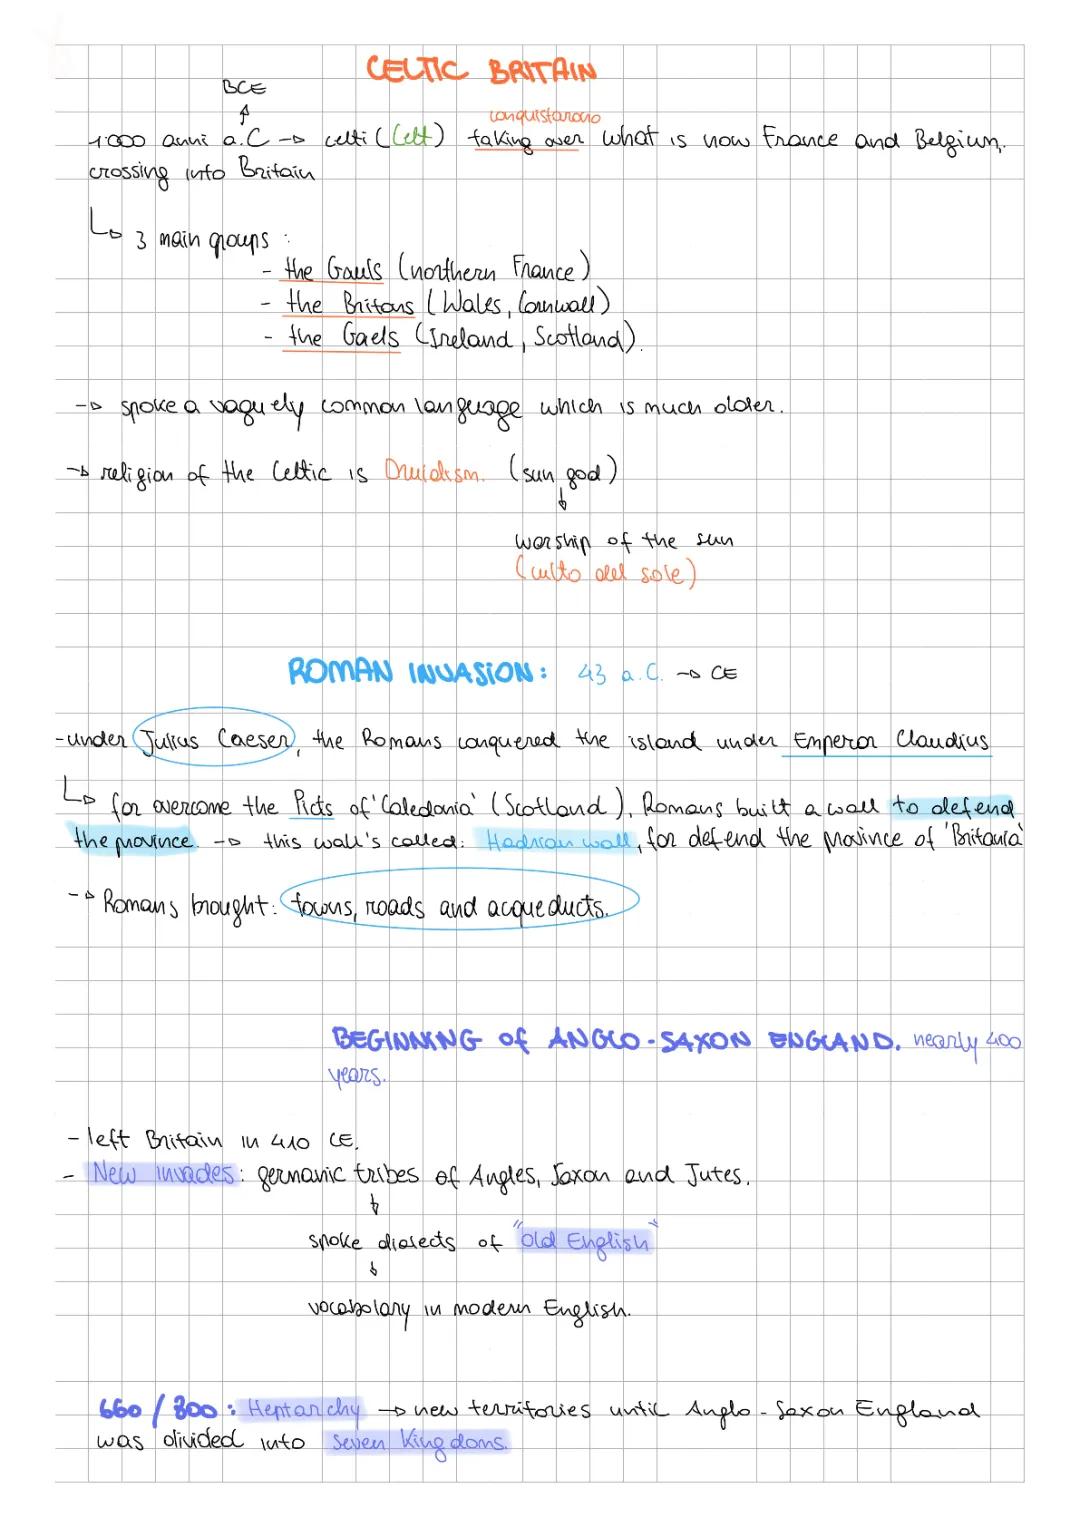 CELTIC BRITAIN
BCE
conquistarono
1000 anni a.C → celti (Celt) taking over what is now France and Belgium,
crossing into Britain
↳ 3 main groups :
- the Gauls (northern France)
- the Britons (Wales, Cornwall)
- the Gaels (Ireland, Scotland).
→ spoke a vaguely common language which is much older.
→ religion of the Celtic is Druidism. (sun god)
↓
worship of the sun
(culto del sole)
ROMAN INVASION: 43 a.C. → CE
- under Julius Caeser, the Romans conquered the island under Emperor Claudius
↳ for overcome the Picts of 'Caledonia' (Scotland), Romans built a wall to defend
the province. → this wall's called: Hadrian wall, for defend the province of 'Britania'
→ Romans brought: towns, roads and acqueducts.
BEGINNING of ANGLO-SAXON ENGLAND. nearly 400
years.
- left Britain in 410 CE.
- New invades: germanic tribes of Angles, Saxon and Jutes.
↓
spoke dialects of "Old English"
↓
vocabolary in modern English.
660 / 800 : Heptarchy → new territories until Anglo-Saxon England
was divided into Seven Kingdoms.